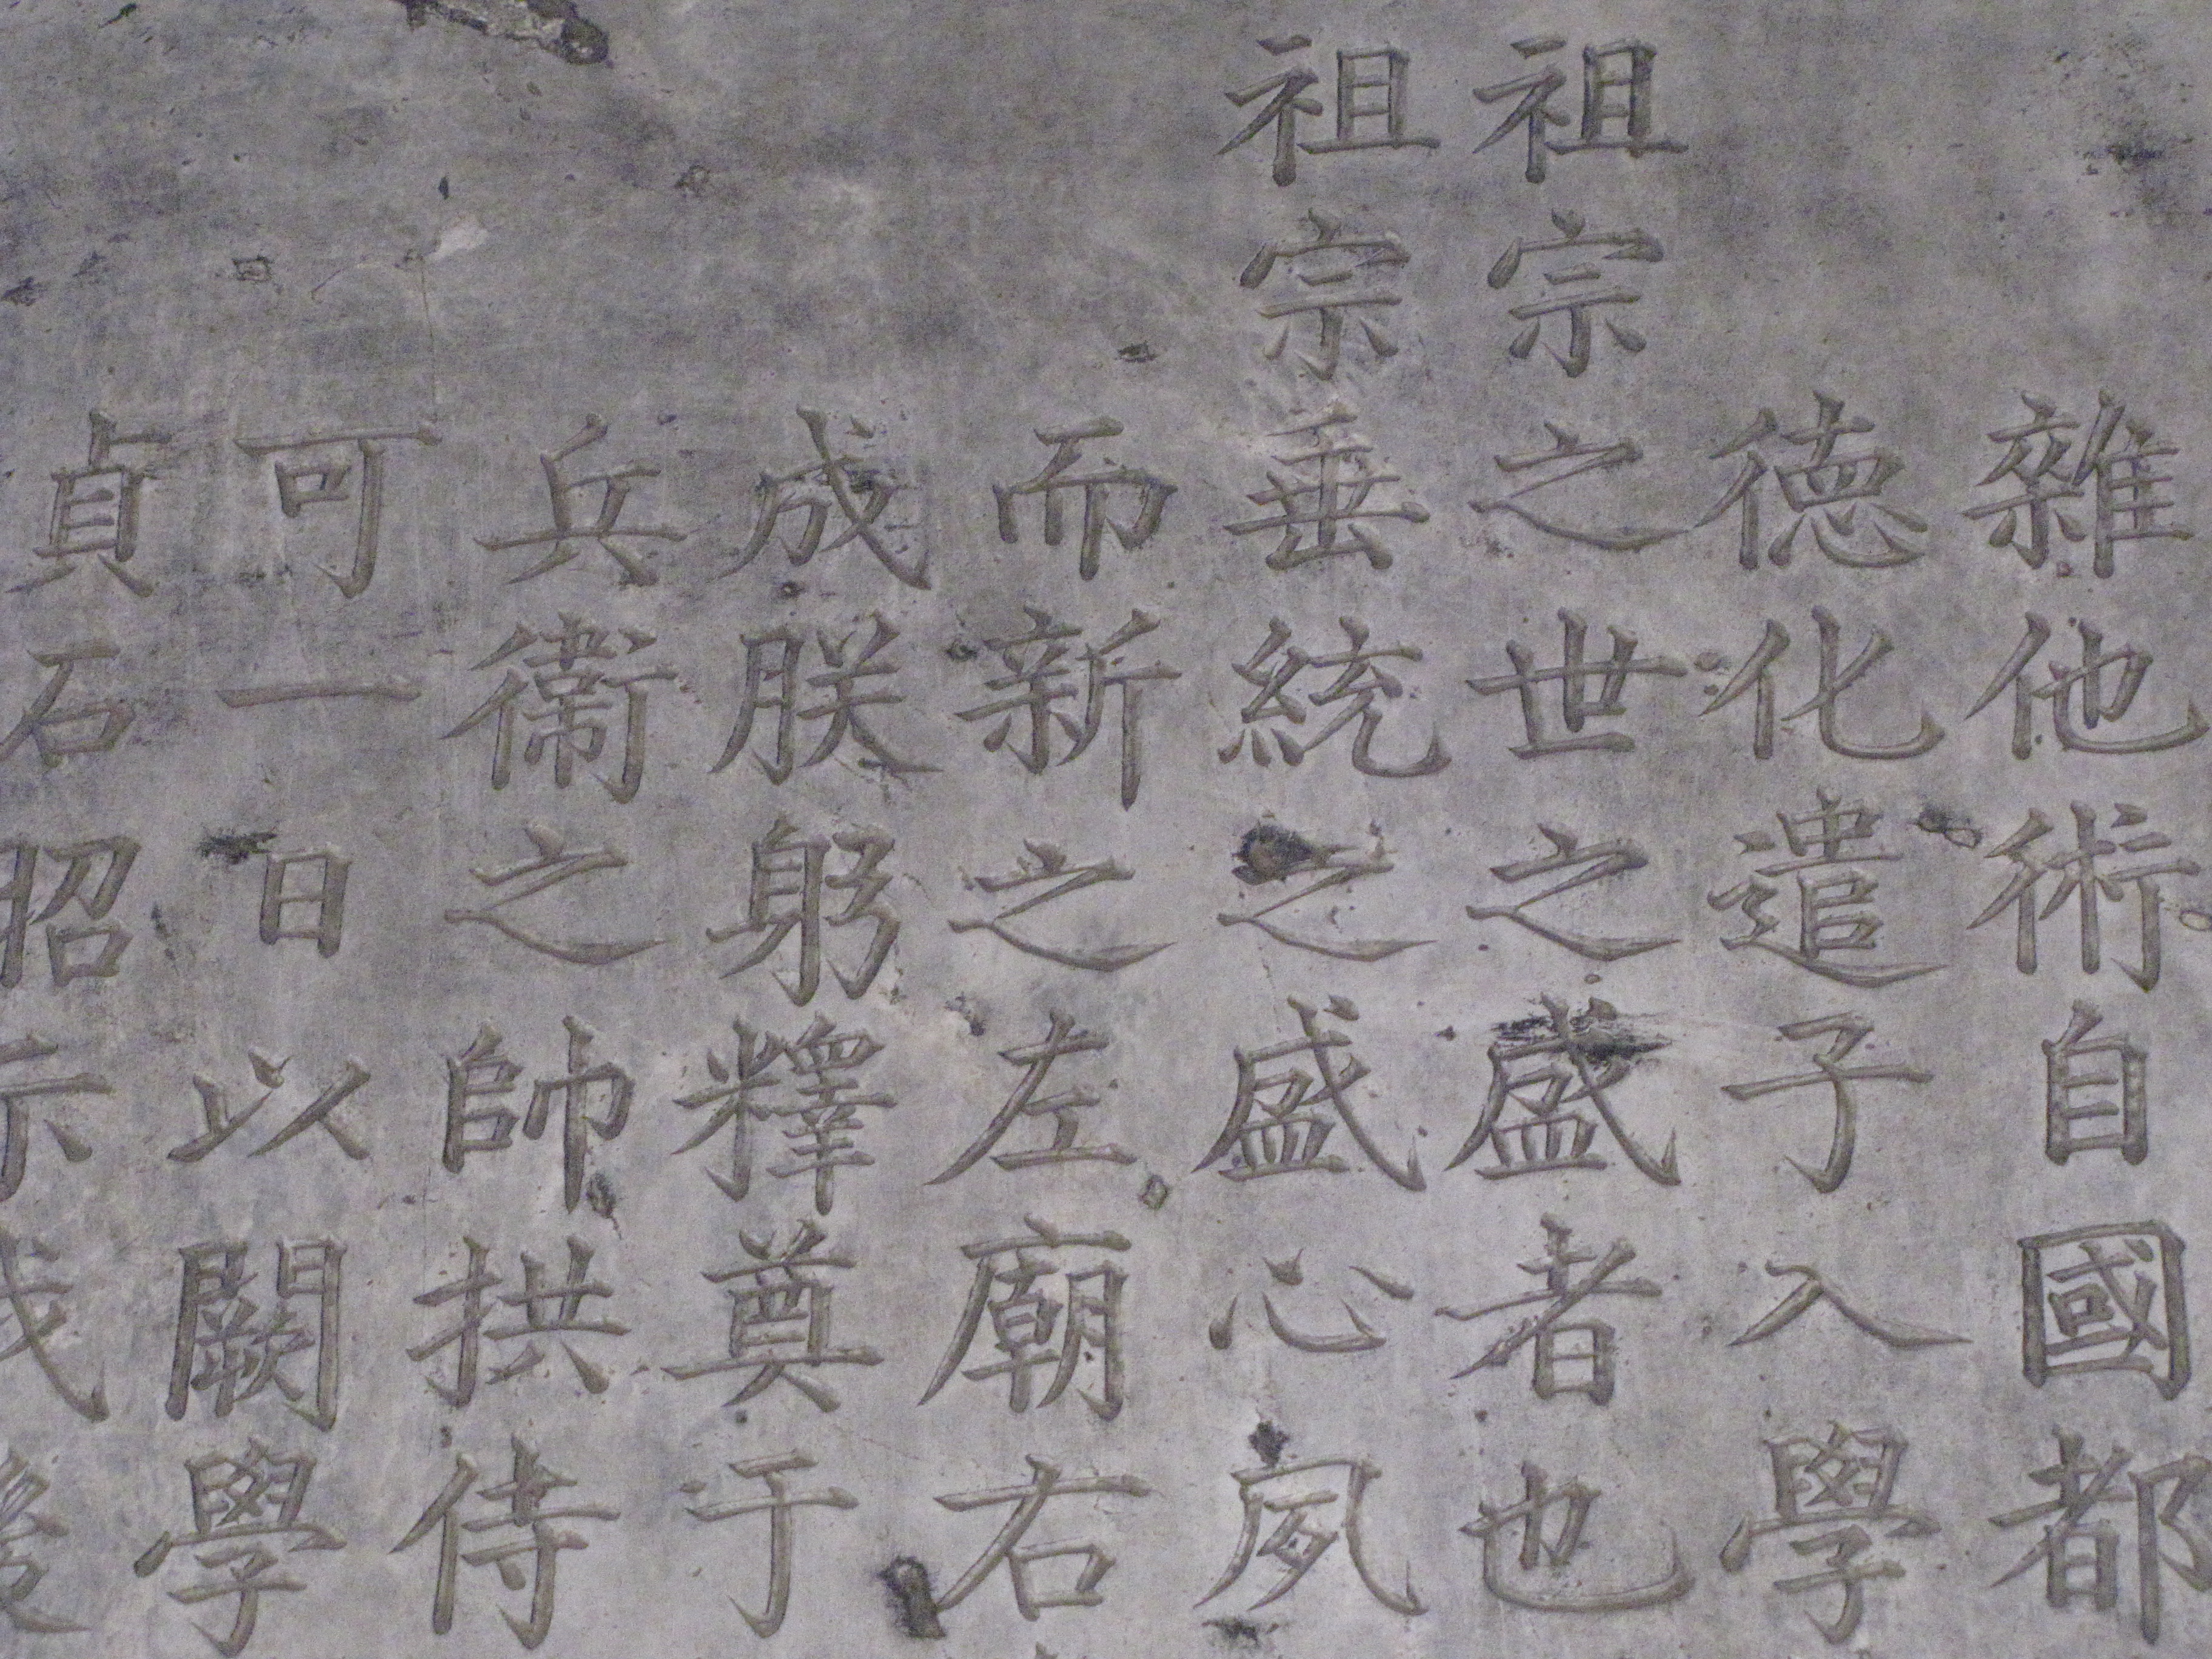 雜他術自國都
德化遣子入學
祖宗之世之盛者也
祖宗垂統之盛心夙
而新之左廟右
成朕躬釋奠于
兵衞之帥拱侍
可一日以闕學
貞石昭示